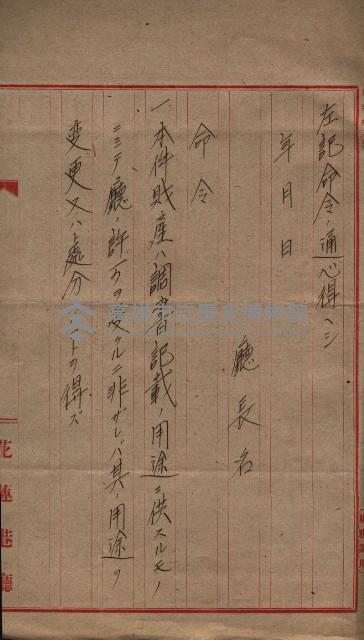 左記命令ノ通心得ヘシ
年月日
廳長名
命令
一本件財産ハ調書記載ノ用途ニ供スルモノ
ニシテ廳ノ許可ヲ受クルニ非ザレバ其ノ用途ヲ
変更又ハ處分コトヲ得ズ
花蓮港廳